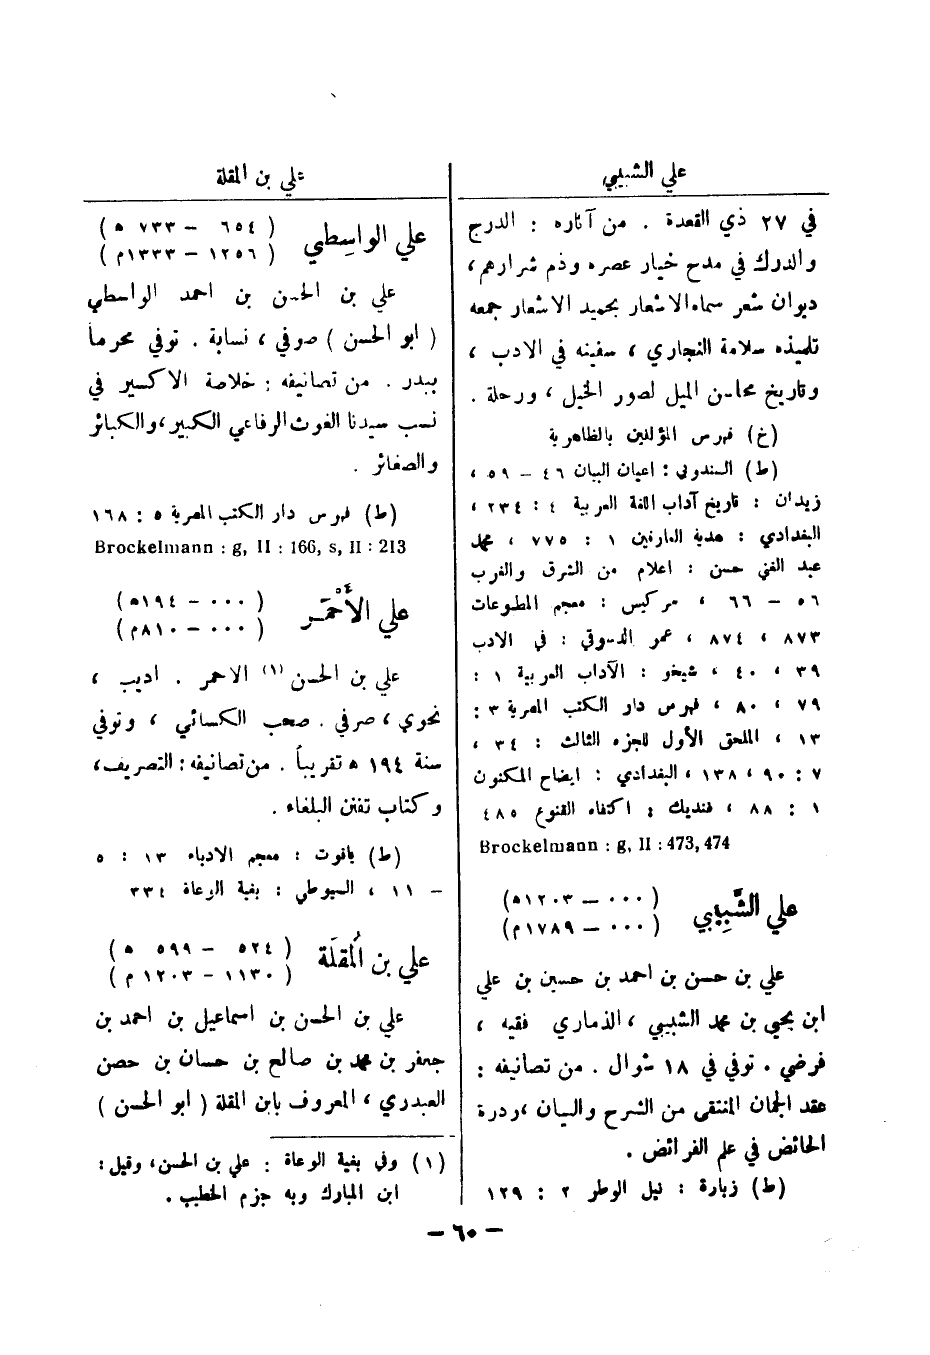 علي الشبيبي
في ٢٧ ذي القعدة . من آثاره : الدرج
والدرك في مدح خيار عصره وذم شرارهم ،
ديوان شعر سماه الاشعار بحميد الاشعار جمعه
تلميذه سلامة النجاري ، سفينه في الادب ،
وتاريخ محاسن الميل لصور الخيل ، ورحلة .
(خ) فهرس المؤلفين بالظاهرية
(ط) السندوبي : اعيان البيان ٤٦ – ٥٩ ،
زيدان : تاريخ آداب اللغة العربية ٤ : ٢٣٤ ،
البغدادي : هدية العارفين ١ : ٧٧٥ ، محمد
عبد الغني حسن : اعلام من الشرق والغرب
٥٦ – ٦٦ ، سركيس : معجم المطبوعات
٨٧٣ ، ٨٧٤ ، عمر الدسوقي : في الادب
٣٩ ، ٤٠ ، شيخو : الآداب العربية ١ :
٧٩ ، ٨٠ ، فهرس دار الكتب المصرية ٣ :
١٣ ، الملحق الأول للجزء الثالث : ٣٤ ،
٧ : ٩٠ ، ١٣٨ ، البغدادي : ايضاح المكنون
١ : ٨٨ ، فنديك : اكتفاء القنوع ٤٨٥
Brockelmann : g, II : 473, 474
علي الشَّبِيبي (٠٠٠ – ١٢٠٣ﻫ)
(٠٠٠ – ١٧٨٩ م)
علي بن حسن بن احمد بن حسين بن علي
ابن يحيى بن محمد الشبيبي ، الذماري فقيه ،
فرضي . توفي في ١٨ شوال . من تصانيفه :
عقد الجمان المنتقى من الشرح والبيان ، ودرة
الحائض في علم الفرائض .
(ط) زبارة : نيل الوطر ٢ : ١٢٩
علي بن المقلة
علي الواسِطي (٦٥٤ – ٧٣٣ ﻫ)
(١٢٥٦ – ١٣٣٣م)
علي بن الحسن بن احمد الواسطي
( ابو الحسن ) صوفي ، نسابة . توفي محرماً
ببدر . من تصانيفه : خلاصة الاكسير في
نسب سيدنا الغوث الرفاعي الكبير ، والكبائر
والصغائر .
(ط) فهرس دار الكتب المصرية ٥ : ١٦٨
Brockelmann : g, II : 166, s, II : 213
علي الأَحْمَر (٠٠٠ – ١٩٤ﻫ)
(٠٠٠ – ٨١٠م)
علي بن الحسن (١) الاحمر . اديب ،
نحوي ، صرفي . صحب الكسائي ، وتوفي
سنة ١٩٤ ﻫ تقريباً . من تصانيفه : التصريف ،
وكتاب تفنن البلغاء .
(ط) ياقوت : معجم الادباء ١٣ : ٥
– ١١ ، السيوطي : بغية الوعاة ٣٣٤
علي بن المُقلَة (٥٢٤ – ٥٩٩ ﻫ)
(١١٣٠ – ١٢٠٣ م)
علي بن الحسن بن اسماعيل بن احمد بن
جعفر بن محمد بن صالح بن حسان بن حصن
العبدري ، المعروف بابن المقلة ( ابو الحسن )
(١) وفي بغية الوعاة : علي بن الحسن ، وقيل :
ابن المبارك وبه جزم الخطيب .
– ٦٠ –